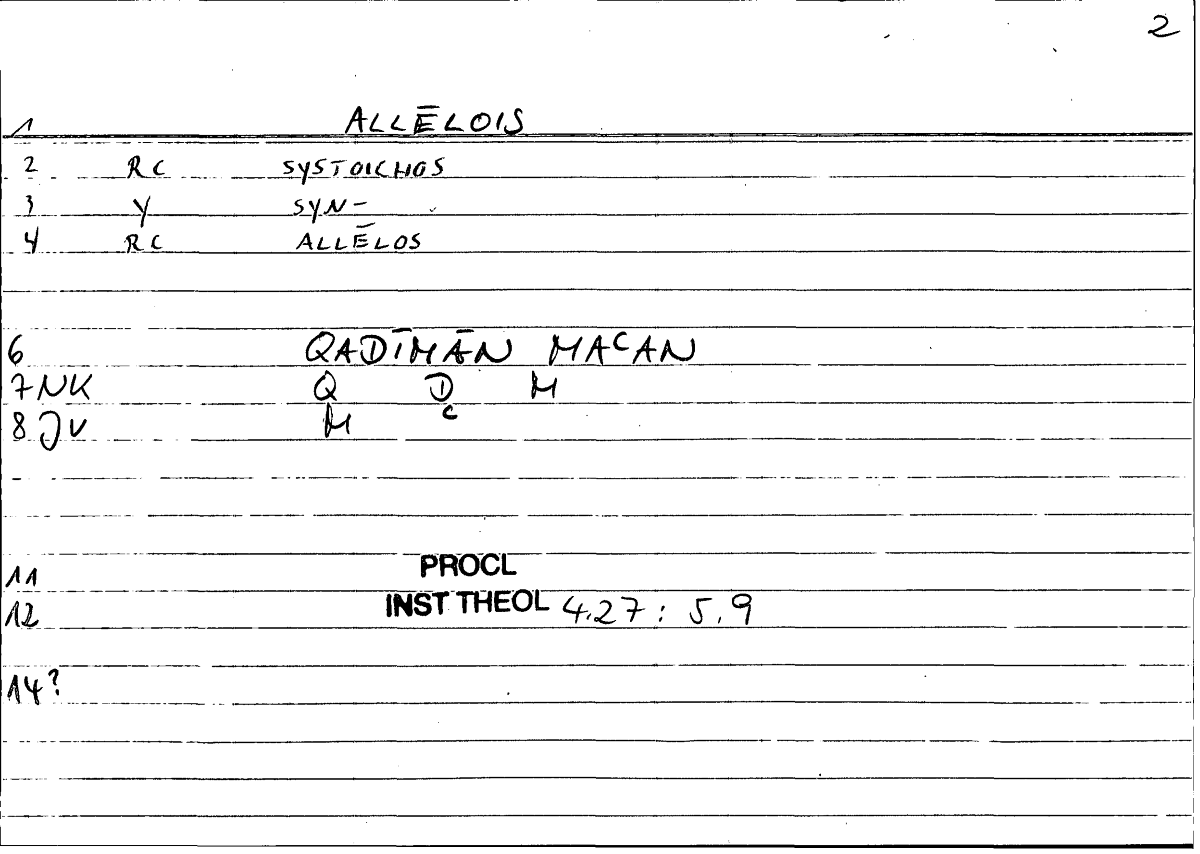 2
1 ALLĒLOIS
2 RC SYSTOICHOS
3 Y SYN-
4 RC ALLĒLOS
6 QADĪMĀN MAʿAN
7 NK Q D M
8 JV M ʿ
11 PROCL
12 INST THEOL 4.27 : 5.9
14?